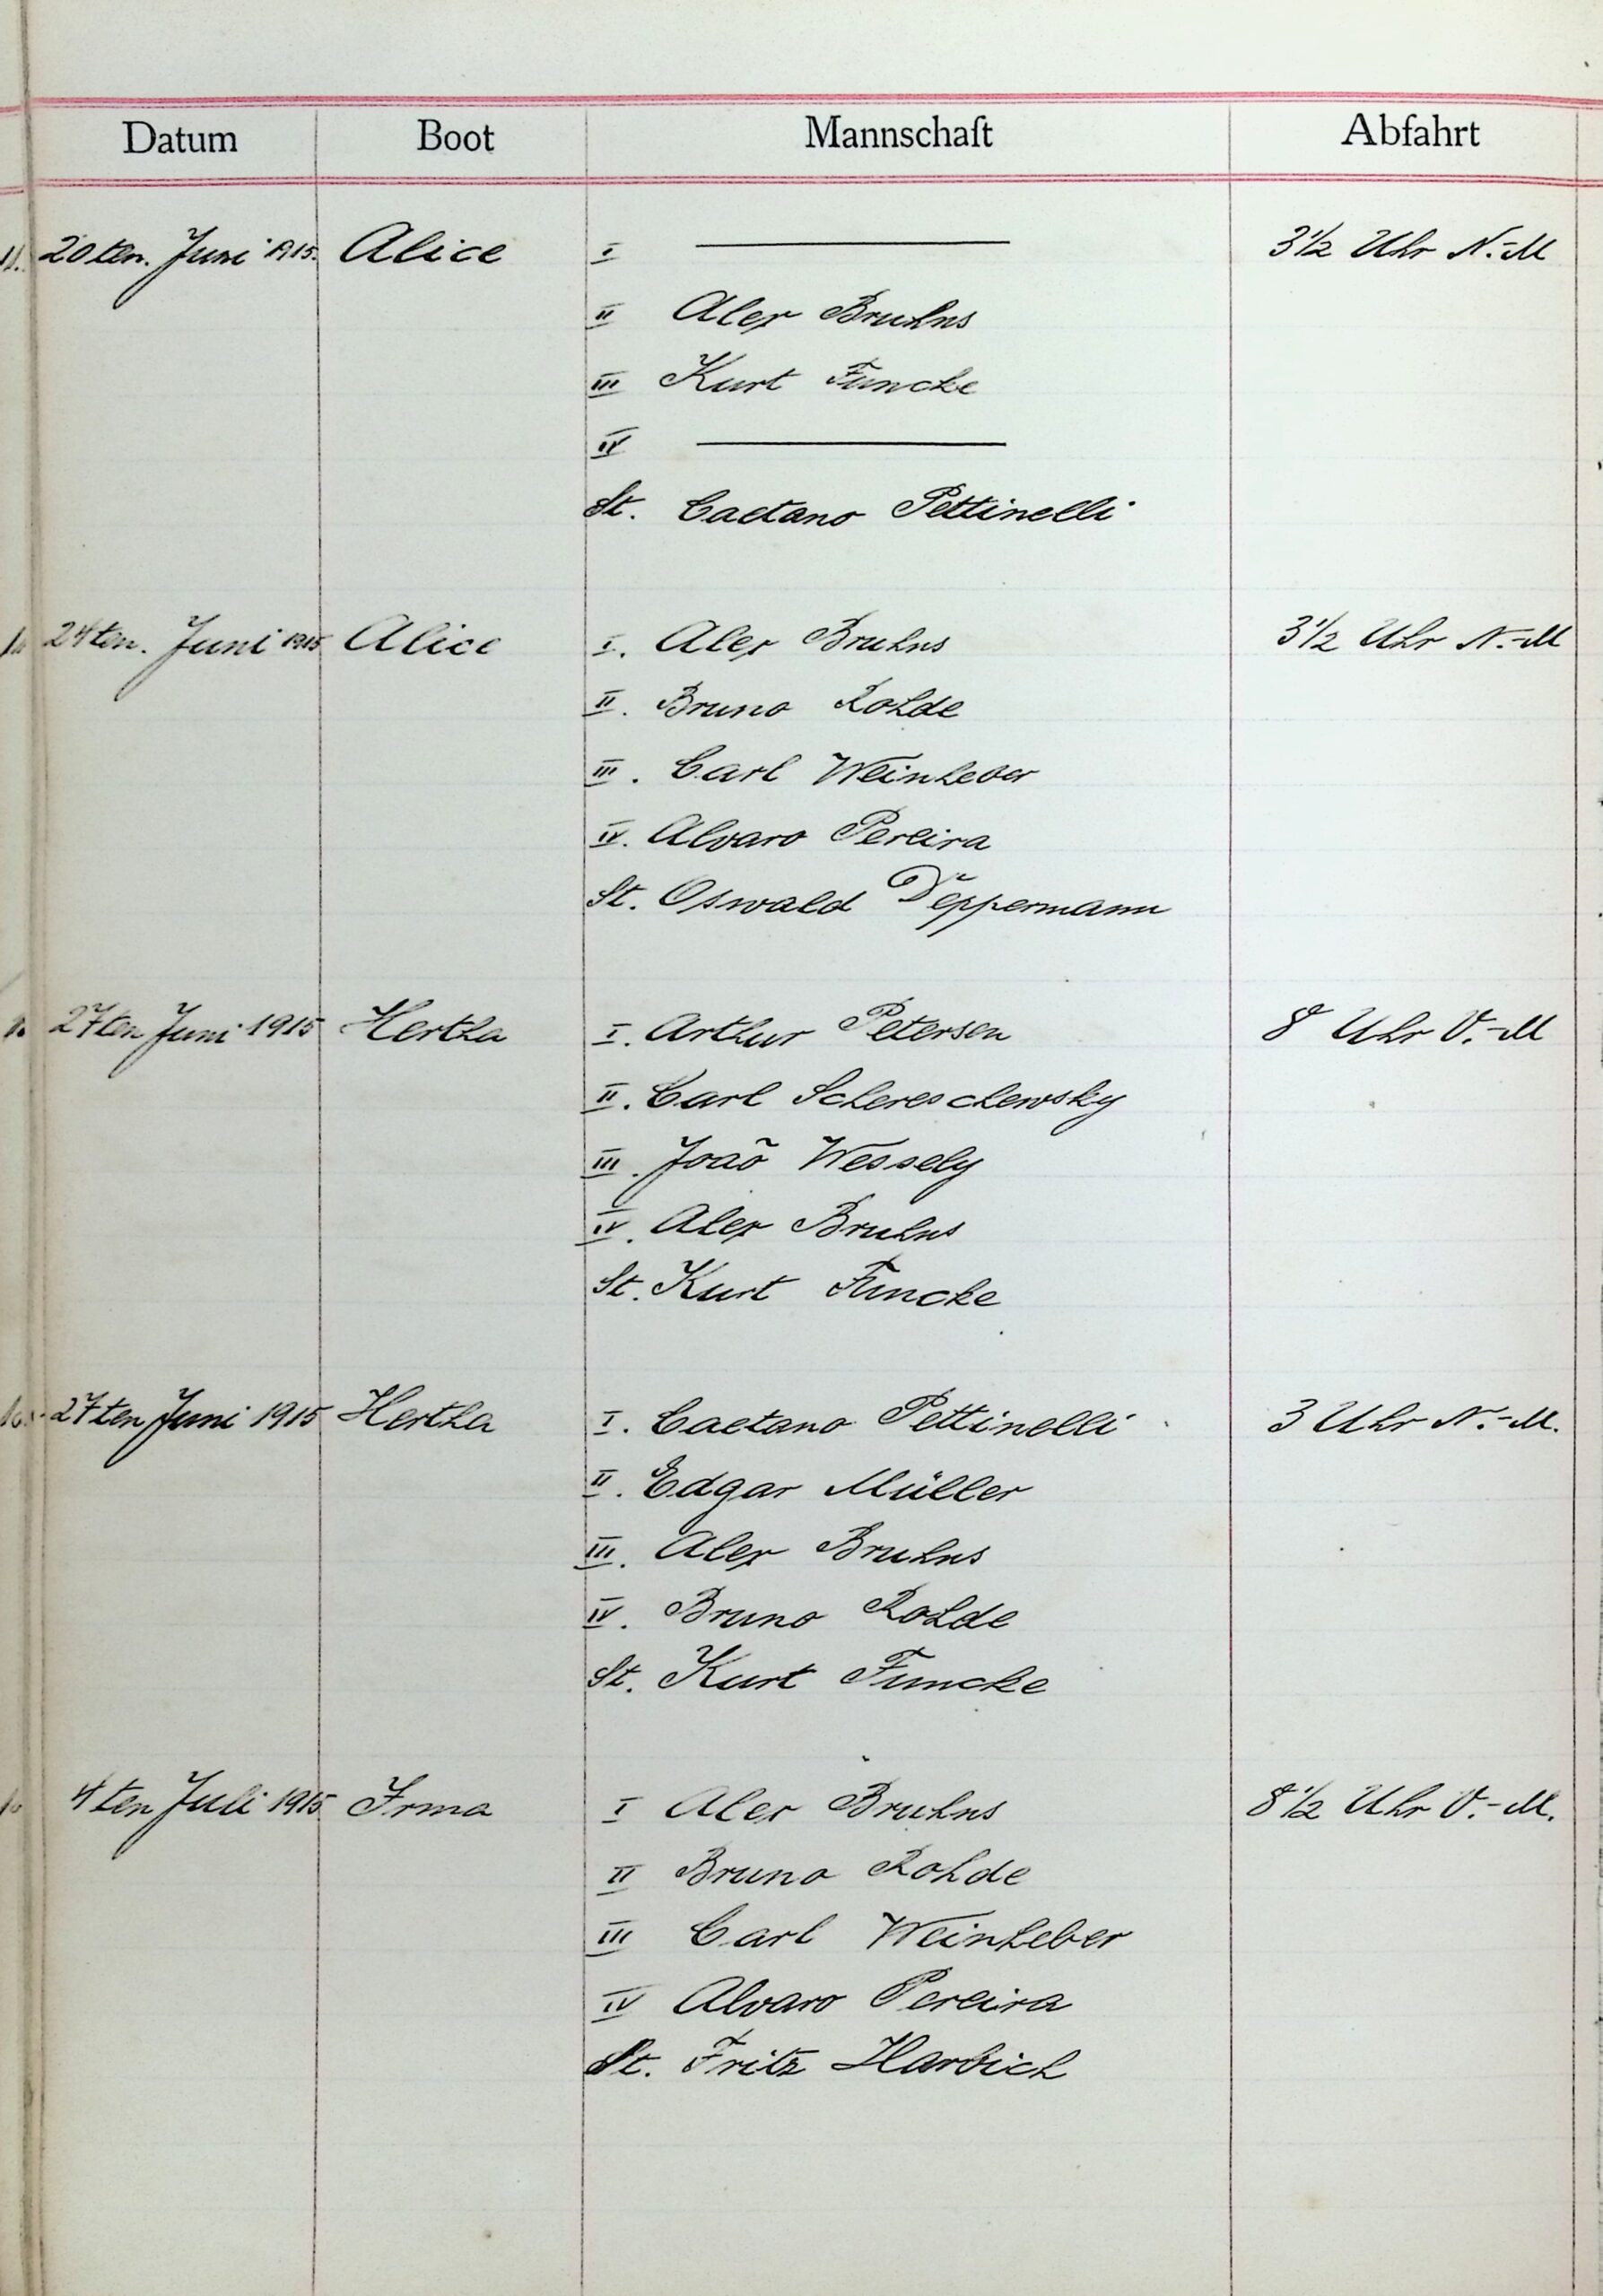 Datum Boot Mannschaft Abfahrt
20ten. Juni 1915. Alice I 3 1/2 Uhr N.-M
II Alex Bruhns
III Kurt Funcke
IV
St. Caetano Pettinelli
24ten. Juni 1915 Alice I. Alex Bruhns 3 1/2 Uhr N.-M
II. Bruno Rohde
III. Carl Weinheber
IV. Alvaro Pereira
St. Oswald Deppermann
27ten Juni 1915 Hertha I. Arthur Petersen 8 Uhr V.-M
II. Carl Schereschewsky
III. Joaõ Wessely
IV. Alex Bruhns
St. Kurt Funcke
27ten Juni 1915 Hertha I. Caetano Pettinelli 3 Uhr N.-M.
II. Edgar Müller
III. Alex Bruhns
IV. Bruno Rohde
St. Kurt Funcke
4ten Juli 1915. Irma I Alex Bruhns 8 1/2 Uhr V.-M.
II Bruno Rohde
III Carl Weinheber
IV Alvaro Pereira
St. Fritz Harbich